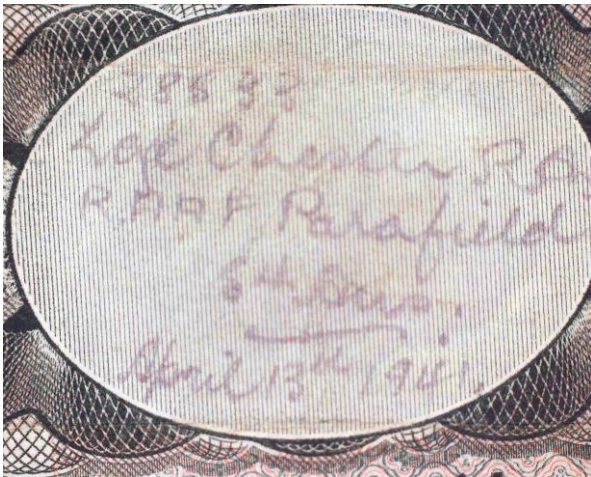 28632
Lac Chester R.A.
R.A.A.F. Parafield
S. Aus.
April 13th 1941.